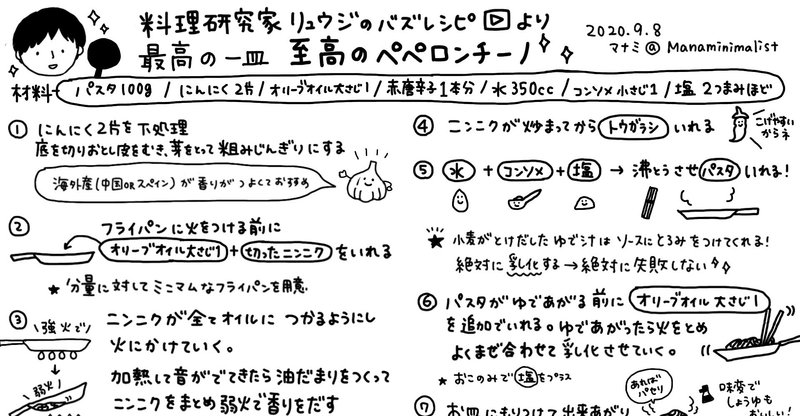 料理研究家 リュウジのバズレシピ ▷ より
最高の一皿 至高のペペロンチーノ
2020.9.8
マナミ@Manaminimalist
材料 パスタ100g / にんにく2片 / オリーブオイル大さじ1 / 赤唐辛子1本分 / 水350cc / コンソメ小さじ1 / 塩 2つまみほど
① にんにく2片を下処理
底を切りおとし皮をむき、芽をとって粗みじんぎりにする
海外産(中国ORスペイン)が香りがつよくておすすめ
② フライパンに火をつける前に
オリーブオイル大さじ1 + 切ったニンニク をいれる
★分量に対してミニマムなフライパンを用意
③ ニンニクが全てオイルに つかるようにし
火にかけていく。
強火で!
加熱して音がでてきたら油だまりをつくって
ニンニクをまとめ弱火で香りをだす
弱火!
④ ニンニクが炒まってから トウガラシ いれる
こげやすいからネ
⑤ 水 + コンソメ + 塩 → 沸とうさせ パスタ いれる!
★ 小麦がとけだしたゆで汁は ソースにとろみをつけてくれる!
絶対に乳化する→絶対に失敗しない
⑥ パスタがゆであがる前に オリーブオイル 大さじ1
を追加でいれる。ゆであがったら火をとめ
よくまぜ合わせて乳化させていく。
★おこのみで塩をプラス
あればパセリ
味変で
しょうゆも
おいしい!
⑦ お皿にもりつけて出来あがり